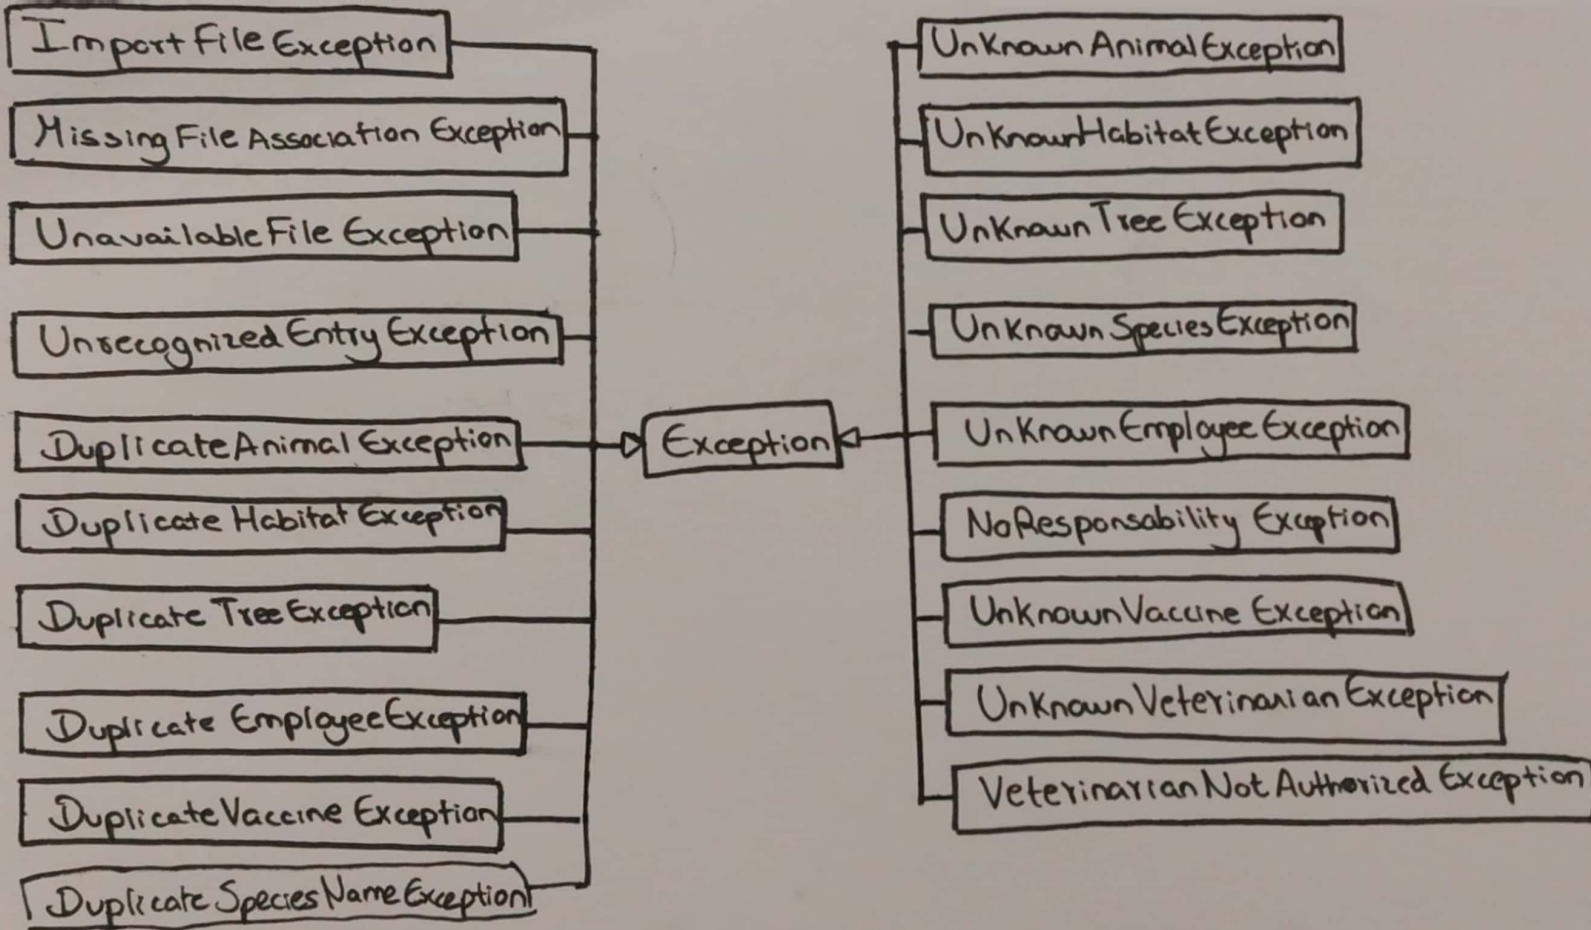 ImportFileException
MissingFileAssociation Exception
UnavailableFile Exception
UnrecognizedEntryException
DuplicateAnimal Exception
Duplicate Habitat Exception
Duplicate TreeException
Duplicate EmployeeException
DuplicateVaccine Exception
Duplicate SpeciesNameException
Exception
UnKnownAnimalException
UnKnownHabitatException
UnKnownTreeException
UnKnownSpeciesException
UnKnownEmployeeException
NoResponsability Exception
UnKnownVaccine Exception
UnKnownVeterinarianException
VeterinarianNotAuthorized Exception